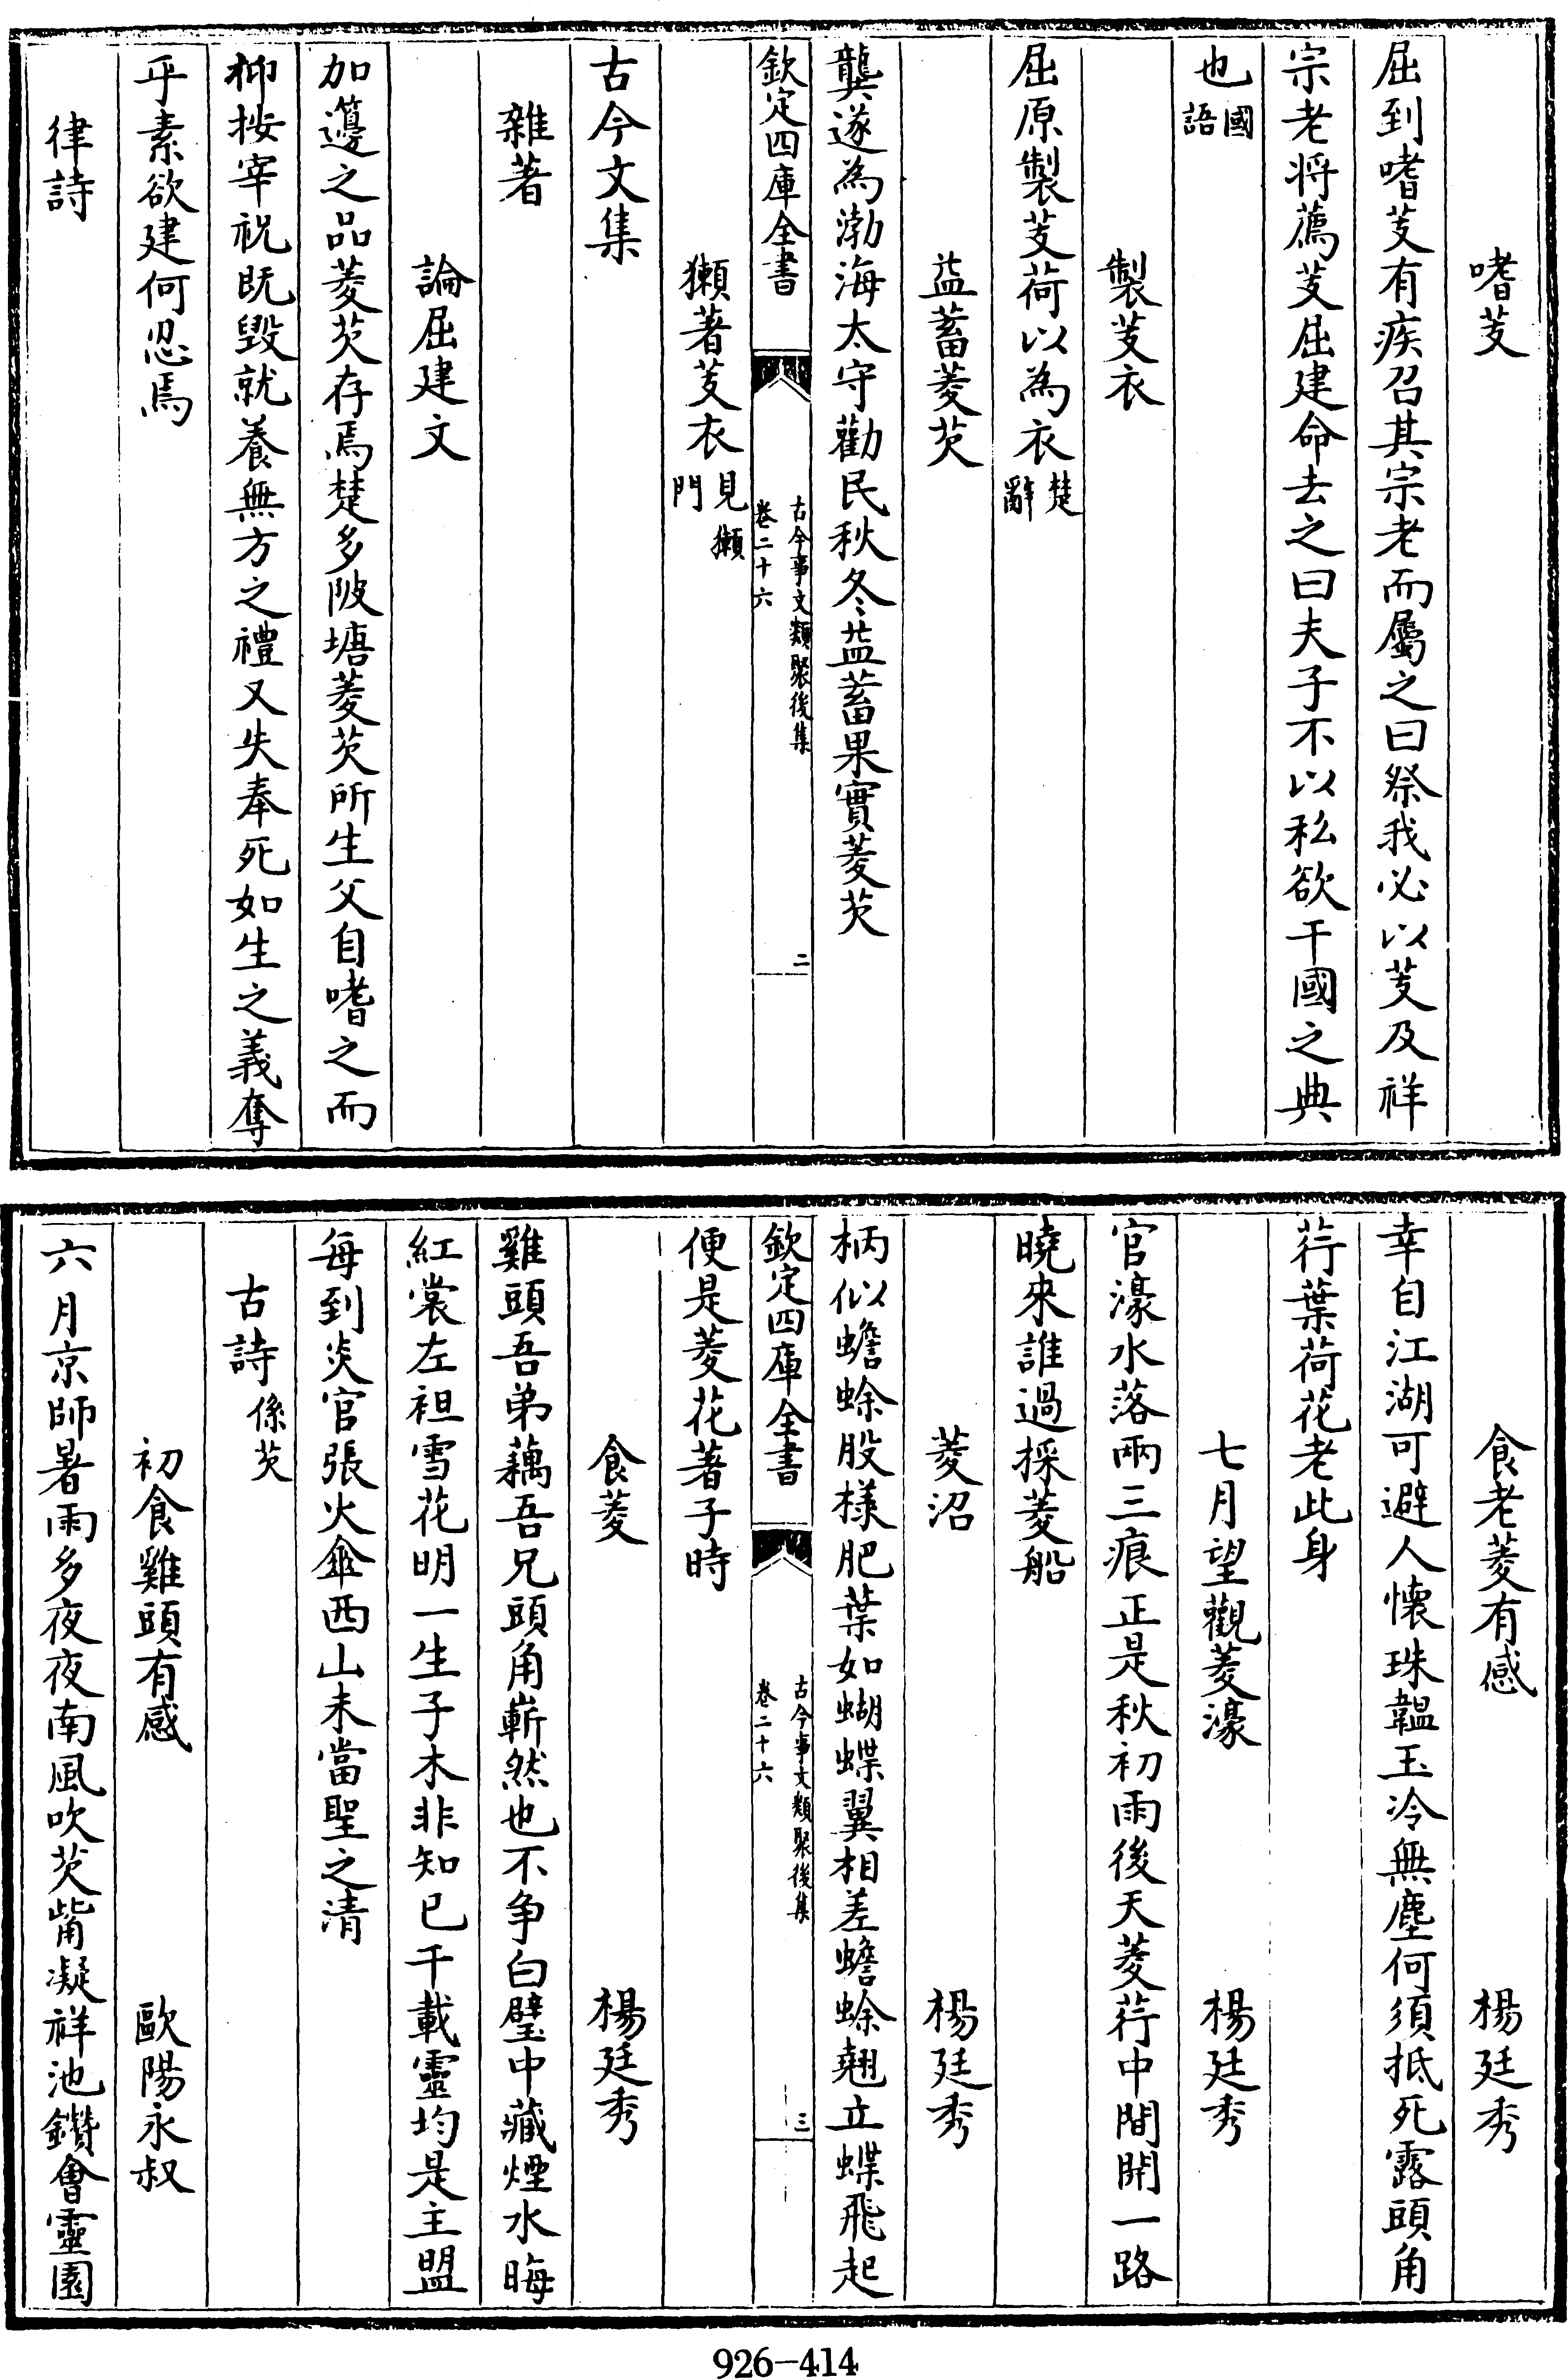 嗜芰
屈到嗜芰有疾召其宗老而屬之曰祭我必以芰及祥
宗老將薦芰屈建命去之曰夫子不以私欲干國之典
也國語
製芰衣
屈原製芰荷以為衣楚辭
益蓄菱芡
龔遂為渤海太守勸民秋冬益蓄果實菱芡
欽定四庫全書
古今事文類聚後集
卷二十六
二
獺著芰衣見獺門
古今文集
雜著
論屈建文
加籩之品菱芡存焉楚多陂塘菱芡所生父自嗜之而
抑按宰祝既毀就養無方之禮又失奉死如生之義奪
乎素欲建何忍焉
律詩
食老菱有感 楊廷秀
幸自江湖可避人懷珠韞玉冷無塵何須抵死露頭角
荇葉荷花老此身
七月望觀菱濠 楊廷秀
官濠水落兩三痕正是秋初雨後天菱荇中間開一路
曉來誰過採菱船
菱沼 楊廷秀
柄似蟾蜍股樣肥葉如蝴蝶翼相差蟾蜍翹立蝶飛起
欽定四庫全書
古今事文類聚後集
卷二十六
三
便是菱花著子時
食菱 楊廷秀
雞頭吾弟藕吾兄頭角嶄然也不争白璧中藏煙水晦
紅裳左袒雪花明一生子木非知已千載靈均是主盟
每到炎官張火傘西山未當聖之清
古詩係芡
初食雞頭有感 歐陽永叔
六月京師暑雨多夜夜南風吹芡觜凝祥池鑽會靈園
926-414